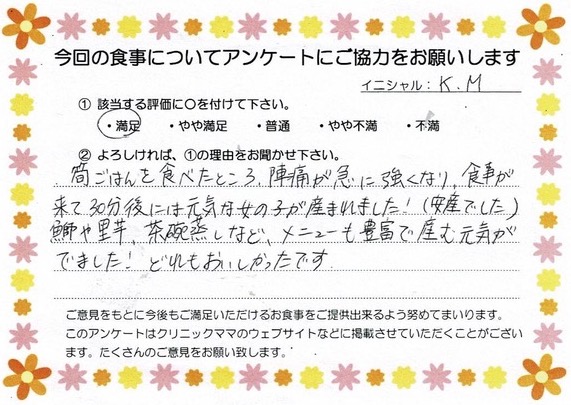 今回の食事についてアンケートにご協力をお願いします
イニシャル：K.M
① 該当する評価に〇を付けて下さい。
・満足 ・やや満足 ・普通 ・やや不満 ・不満
② よろしければ、①の理由をお聞かせ下さい。
筍ごはんを食べたところ、陣痛が急に強くなり、食事が
来て30分後には元気な女の子が産まれました！(安産でした)
鰤や里芋、茶碗蒸しなど、メニューも豊富で産む元気が
でました！どれもおいしかったです
ご意見をもとに今後もご満足いただけるお食事をご提供出来るよう努めてまいります。
このアンケートはクリニックママのウェブサイトなどに掲載させていただくことがござい
ます。たくさんのご意見をお願い致します。